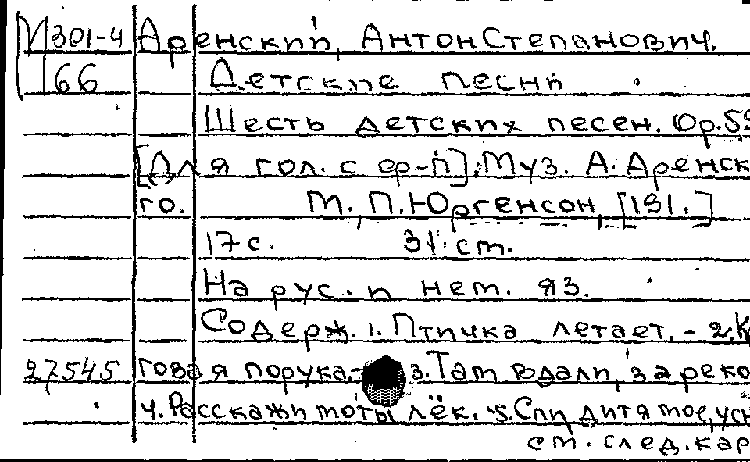 М301-4 Аренский, Антон Степанович.
166 Детские песни
Шесть детских песен. Op.59
[Для гол. с ф-п]. Муз. А. Аренск
го. М., П. Юргенсон, [191.]
17 с. 31 см.
На рус. и нем. яз.
Содерж. 1. Птичка летает. - 2. К
27545 говая порука. - 3. Там вдали, за реко
4. Расскажи моты лёк. - 5. Спи дитя мое, ус
см. след. кар